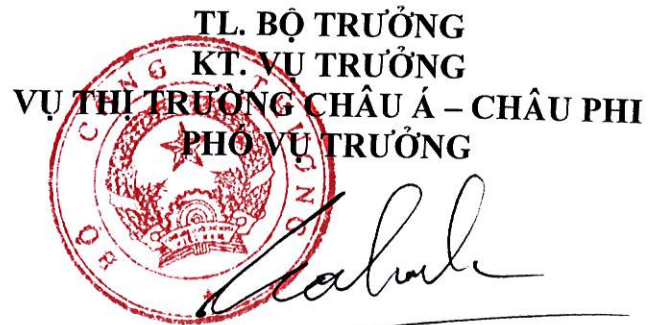 TL. BỘ TRƯỞNG
KT. VỤ TRƯỞNG
VỤ THỊ TRƯỜNG CHÂU Á – CHÂU PHI
PHÓ VỤ TRƯỞNG
BỘ CÔNG THƯƠNG